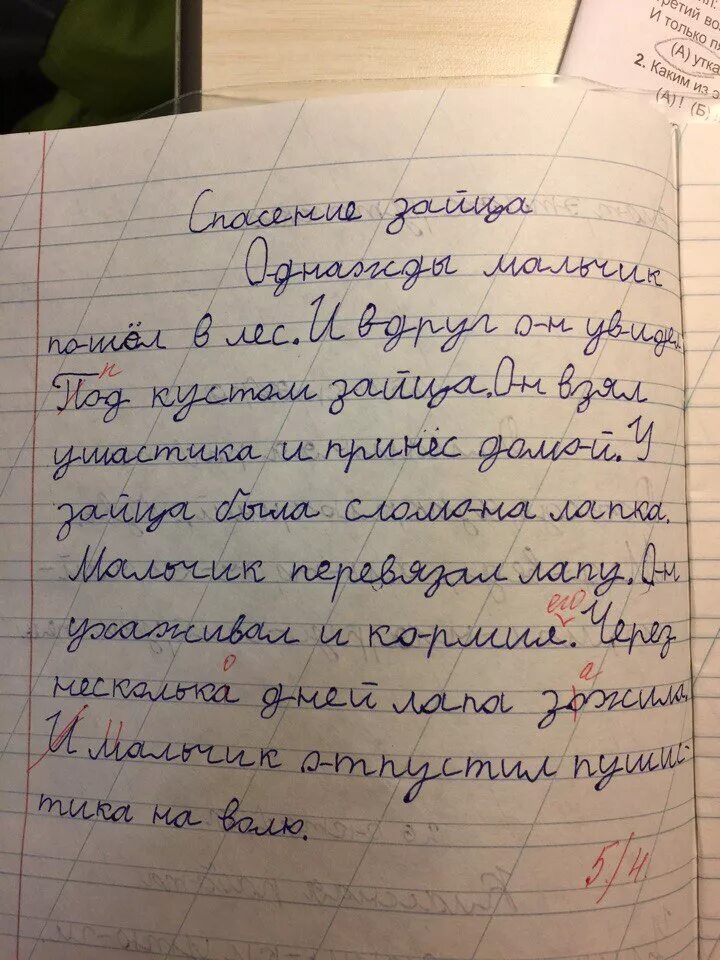 ретий во
И только п
(А) утка
2. Каким из э
(А) ! (Б)
Спасение зайца
Однажды мальчик
пошёл в лес. И вдруг он увиде
п
Под кустом зайца. Он взял
ушастика и принёс домой. У
зайца была сломона лапка.
Мальчик перевязал лапу. Он
его
ухаживал и кормил. Через
о а
несколька дней лапа зожила.
И Мальчик отпустил пушис-
тика на волю.
5/4